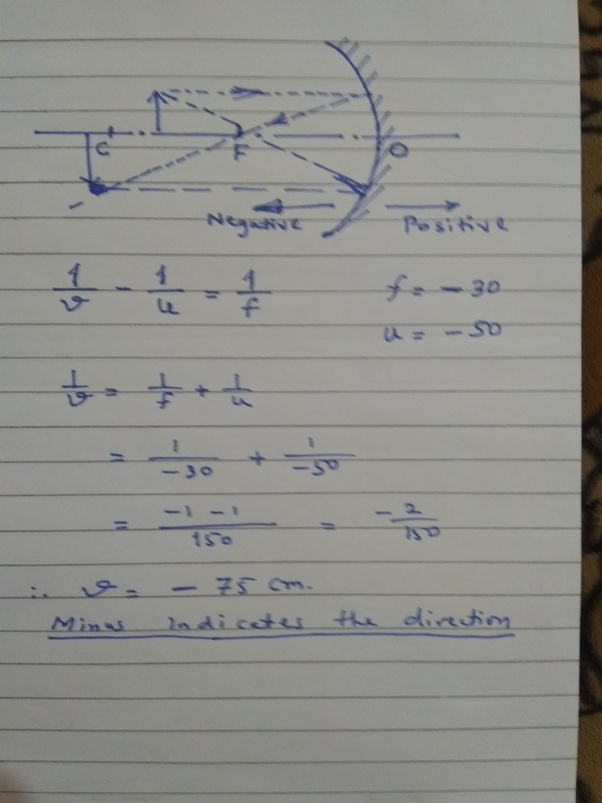 C F O
Negative Positive
1/v - 1/u = 1/f f = - 30
u = - 50
1/v = 1/f + 1/u
= 1/-30 + 1/-50
= -1 -1/150 = -2/150
∴ v = - 75 cm.
Minus indicates the direction